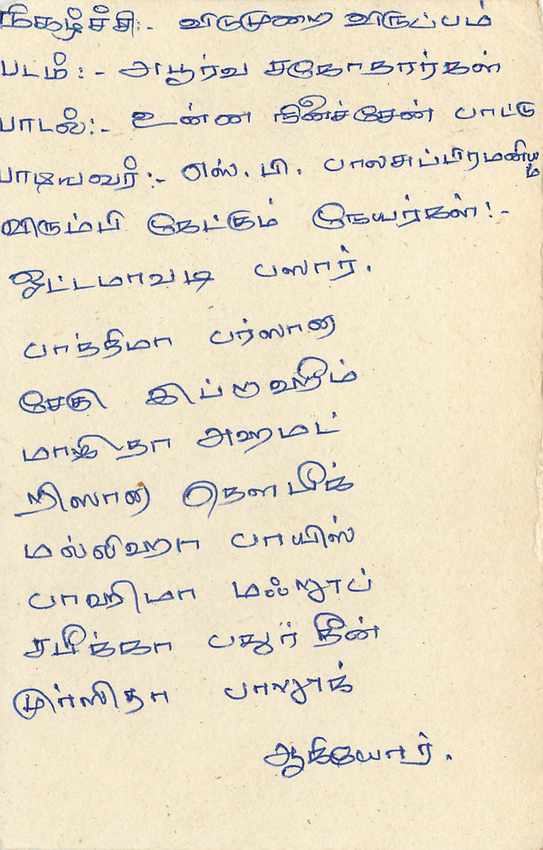 நிகழ்ச்சி:- விடுமுறை விருப்பம்
படம்:- அபூர்வ சகோதரர்கள்
பாடல்:- உன்ன நினைச்சேன் பாட்டு
பாடியவர்:- எஸ். பி. பாலசுப்பிரமணியம்
விரும்பி கேட்கும் நேயர்கள்!-
ஓட்டமாவடி பஸார்.
பாத்திமா பர்ஸானா
சேகு இப்றாஹீம்
மாஜிதா அஹமட்
றிஸானா தௌபீக்
மல்லிஹா பாயிஸ்
பாஹிமா மஃறூப்
சமீக்கா பதுர்தீன்
முர்ஸிதா பாறூக்
ஆகியோர்.